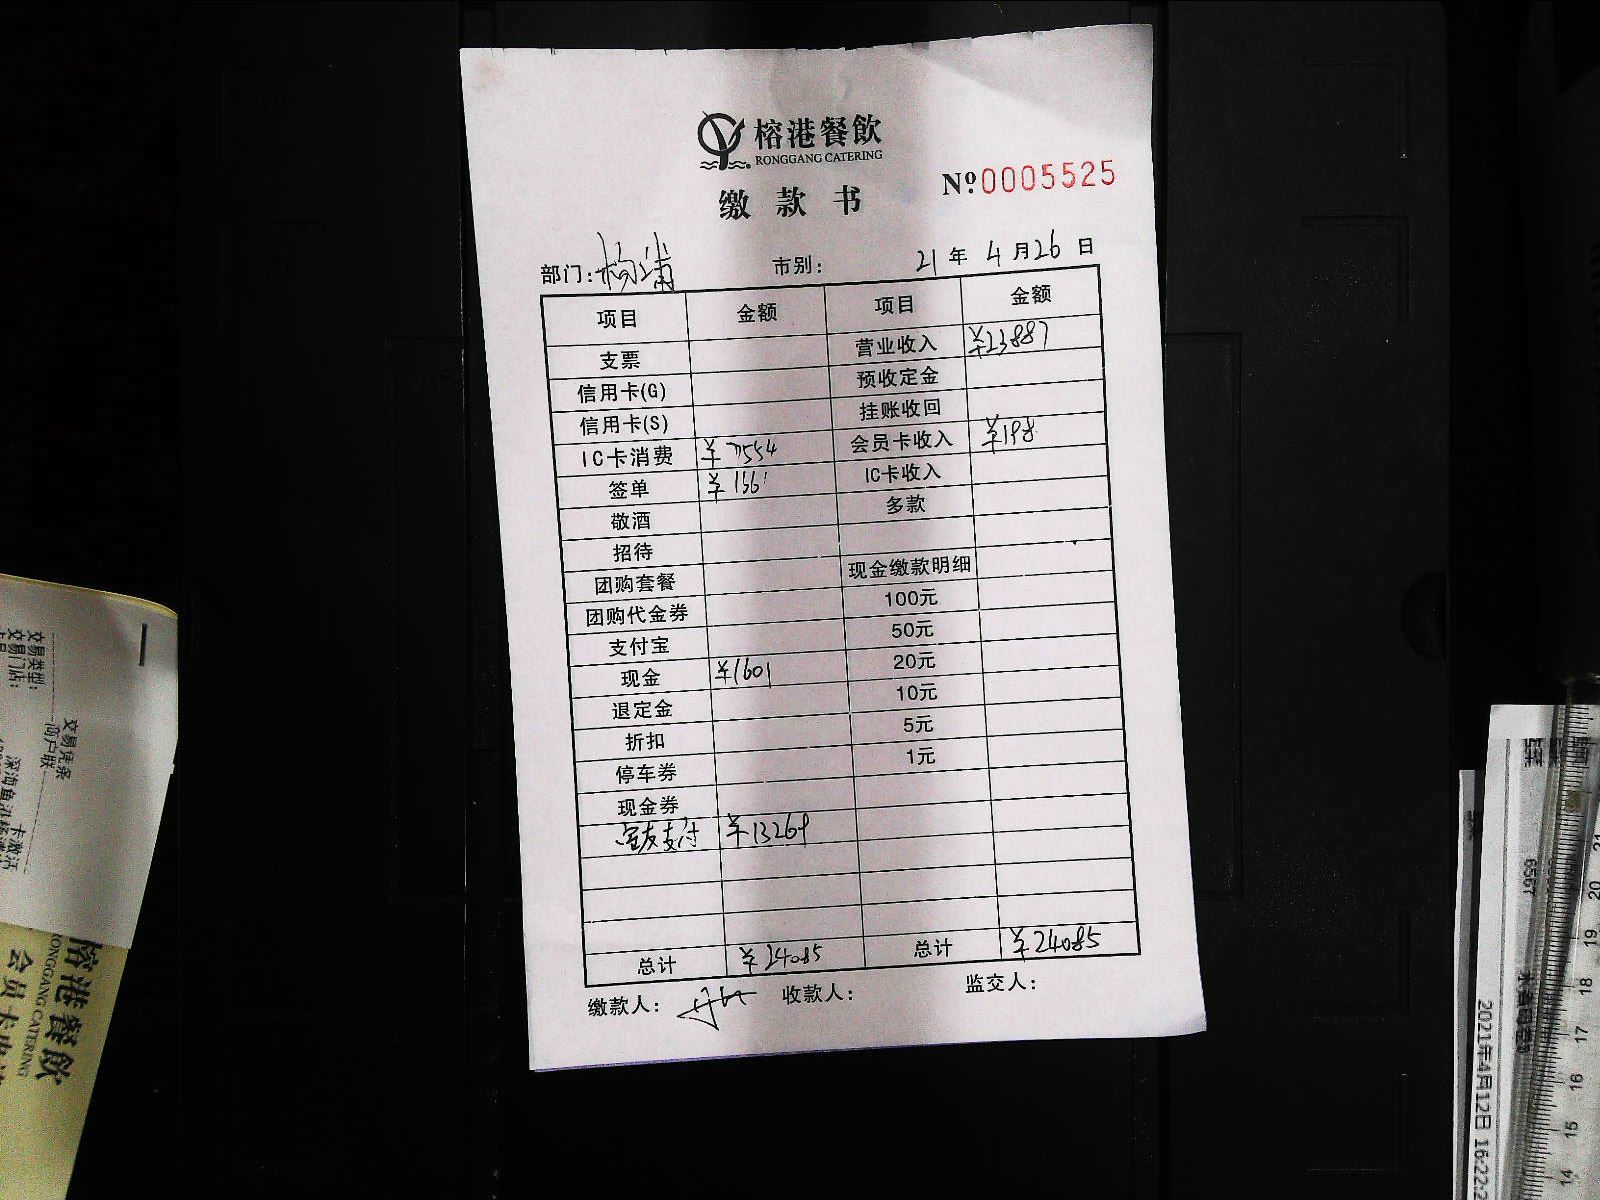 榕港餐飲
RONGGANG CATERING
缴款书
Nº.0005525
部门:杨浦 市别: 21年4月26日
项目 金额 项目 金额
支票 营业收入 ¥23887
信用卡(G) 预收定金
信用卡(S) 挂账收回
IC卡消费 ¥7554 会员卡收入 ¥198
签单 ¥1661 IC卡收入
敬酒 多款
招待
团购套餐 现金缴款明细
团购代金券 100元
支付宝 50元
现金 ¥1601 20元
退定金 10元
折扣 5元
停车券 1元
现金券
宝友支付 ¥13269
总计 ¥24085 总计 ¥24085
缴款人: 收款人: 监交人:
交易类型:
交易门店:
交易凭条
商户联
卡激活
榕港餐飲
RONGGANG CATERING
2021年4月12日 16:22:2
21
20
19
18
17
16
15
14